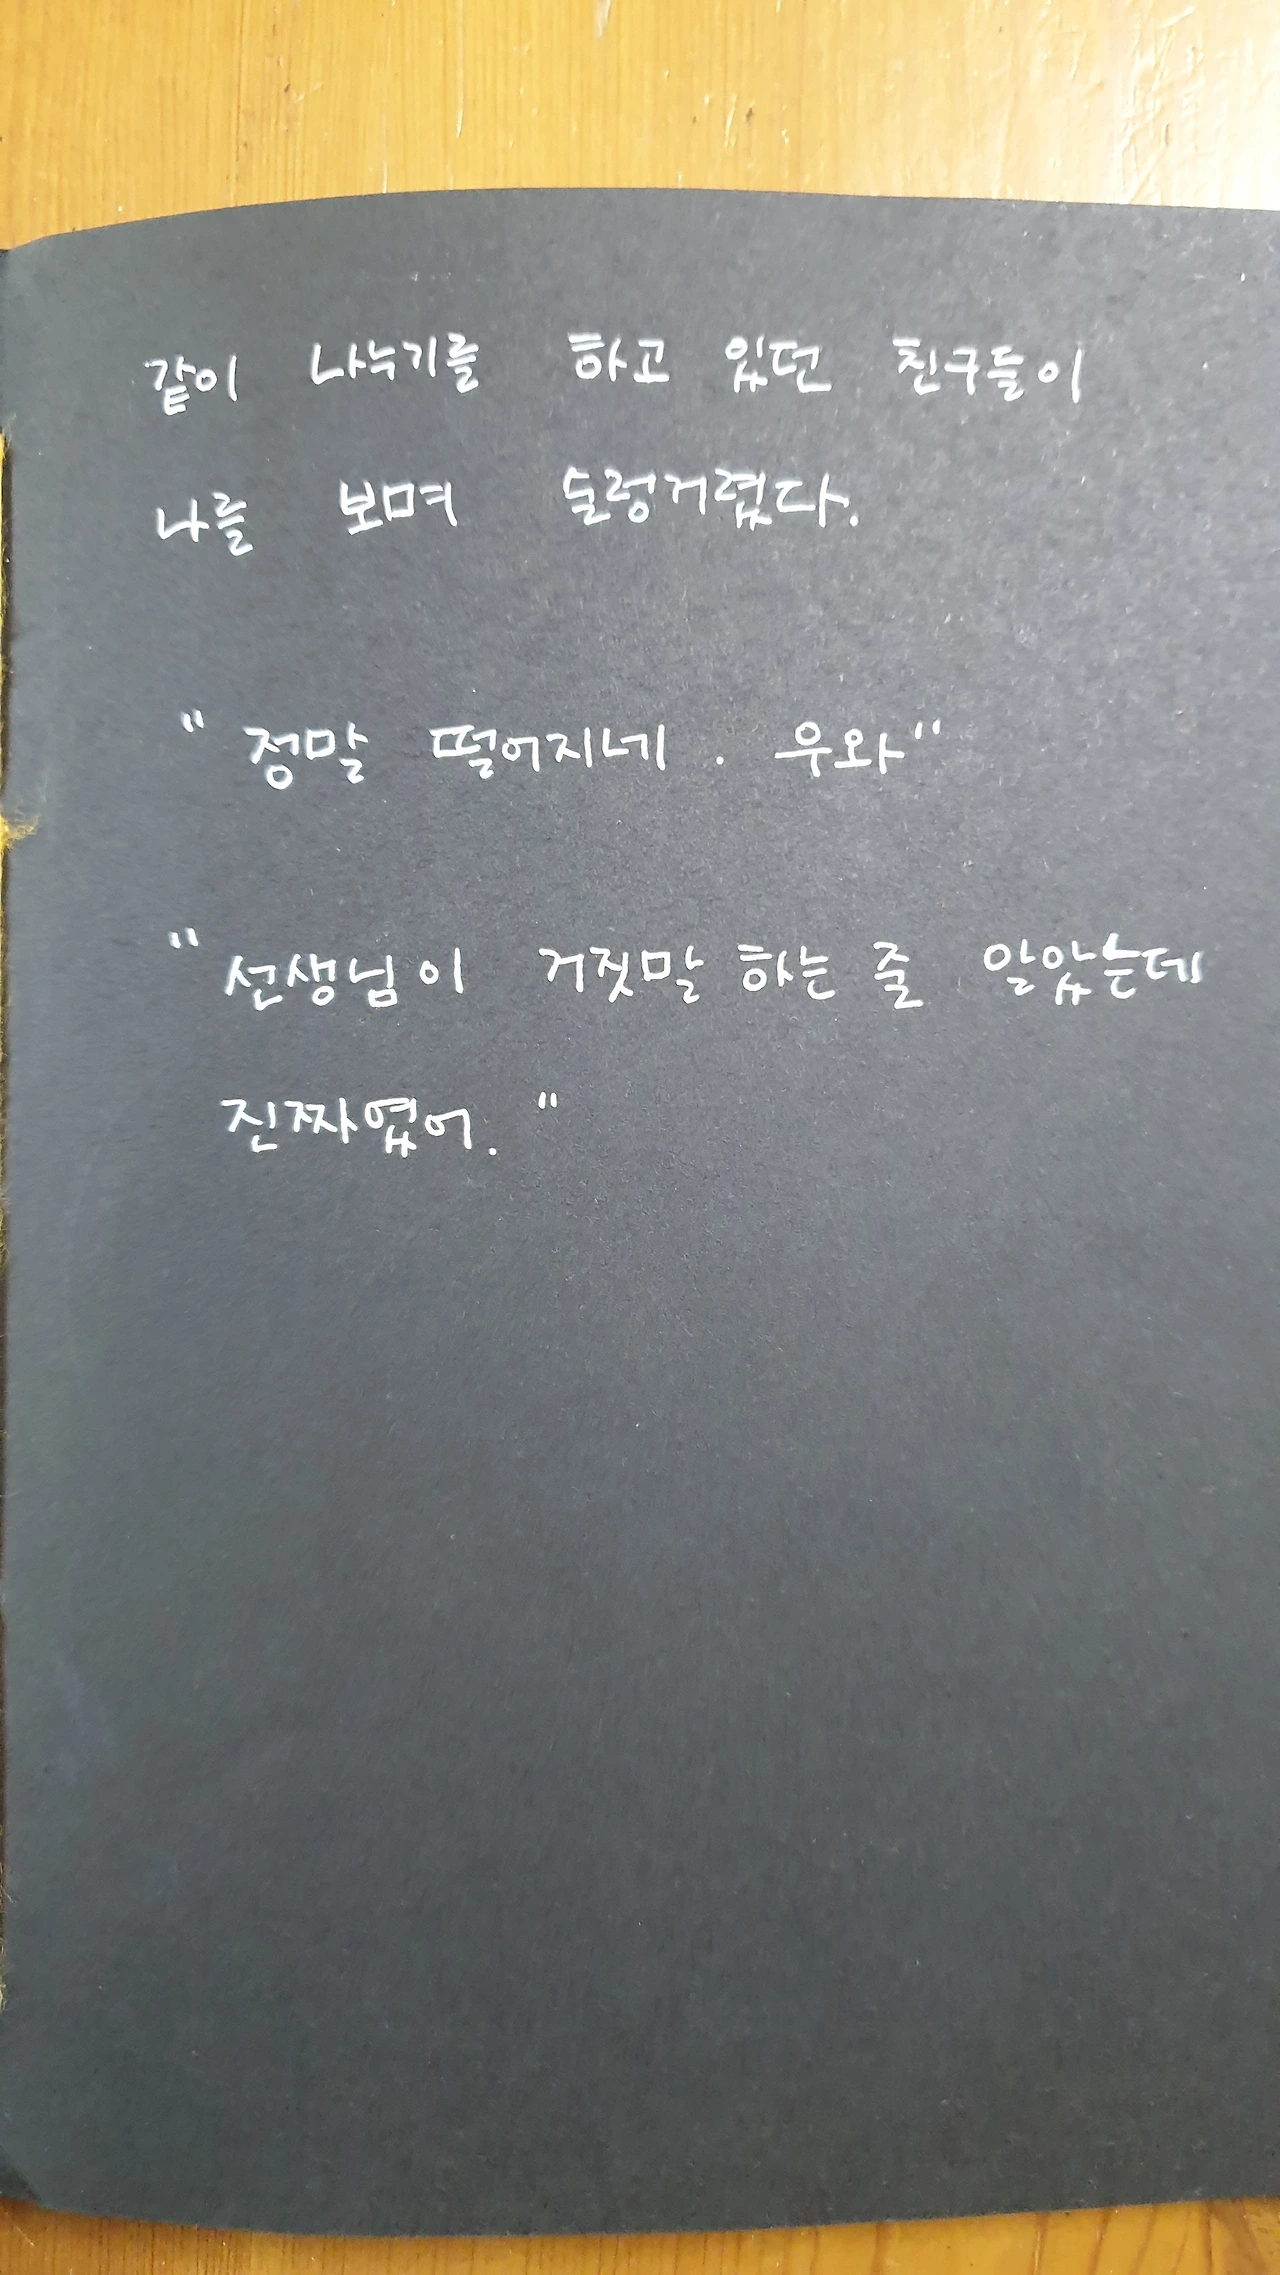 같이 나누기를 하고 있던 친구들이
나를 보며 술렁거렸다.
" 정말 떨어지네 . 우와"
" 선생님이 거짓말 하는 줄 알았는데
진짜였어. "